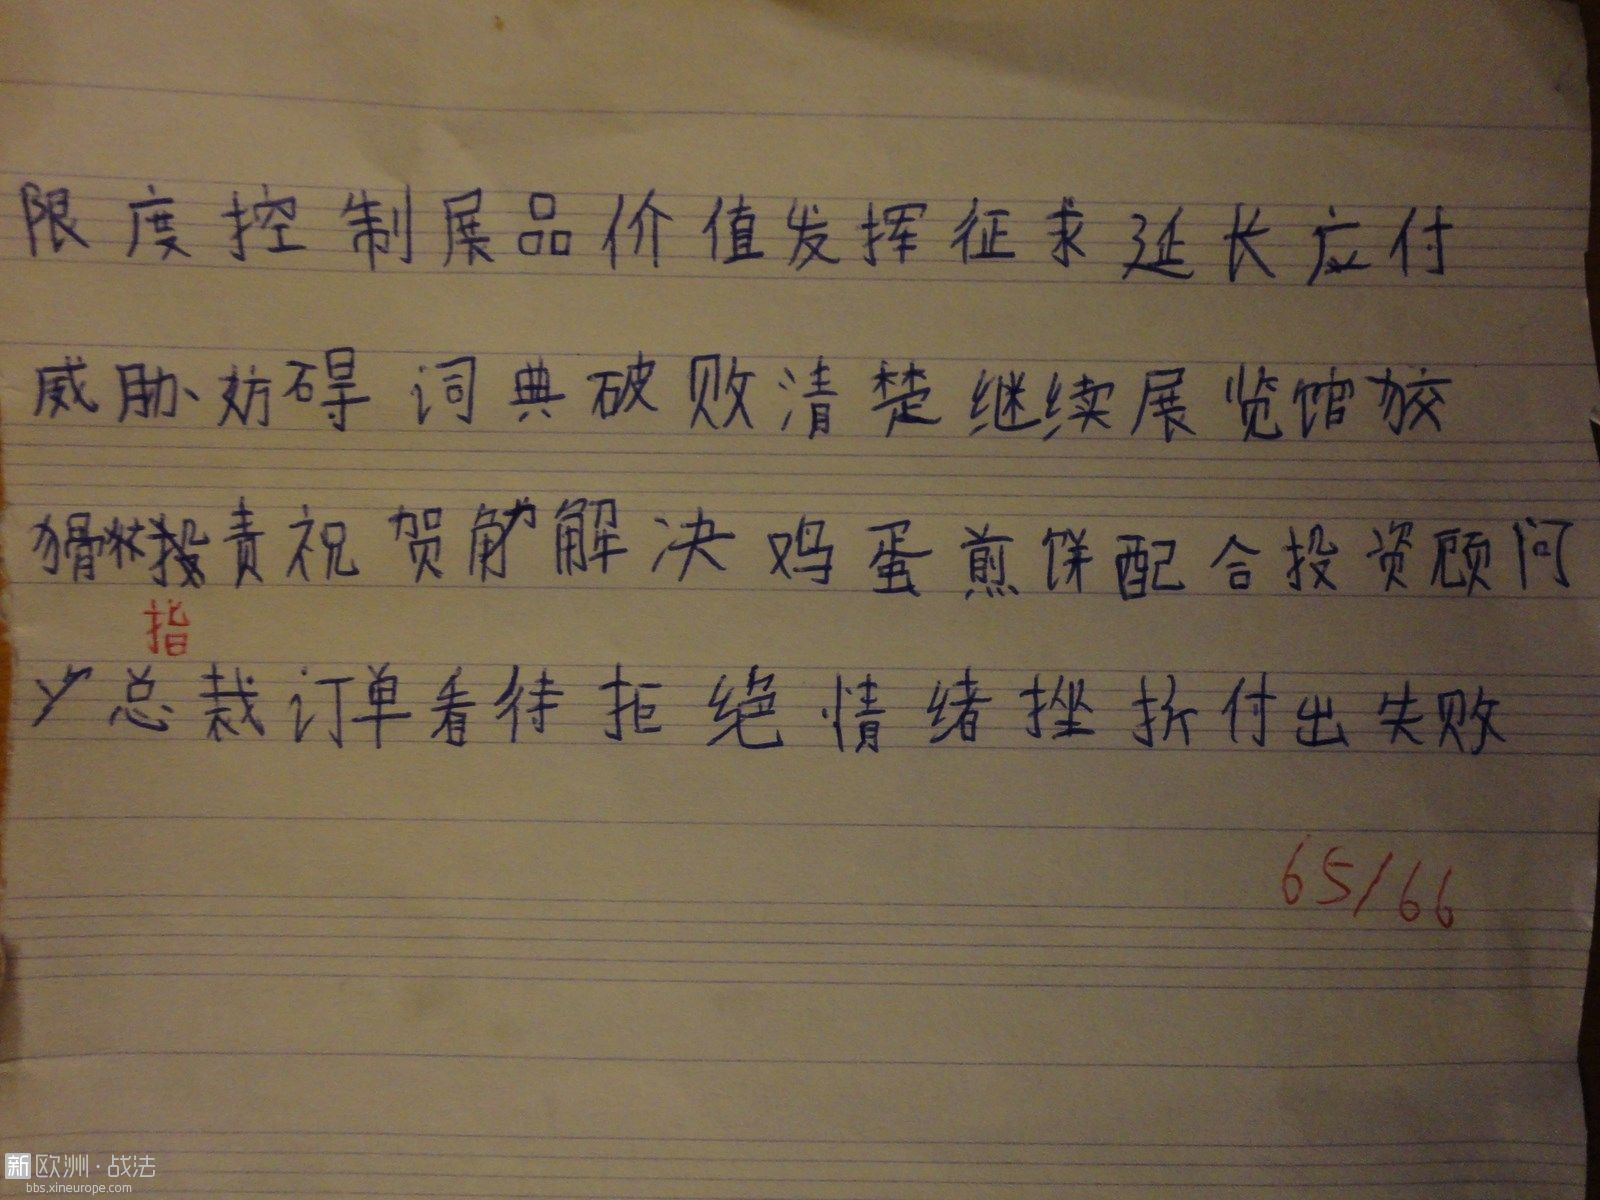 限度控制展品价值发挥征求延长应付
威胁妨碍词典破败清楚继续展览馆狡
猾投责祝贺解决鸡蛋煎饼配合投资顾问
指
总裁订单看待拒绝情绪挫折付出失败
65/66
新欧洲·战法
bbs.xineurope.com